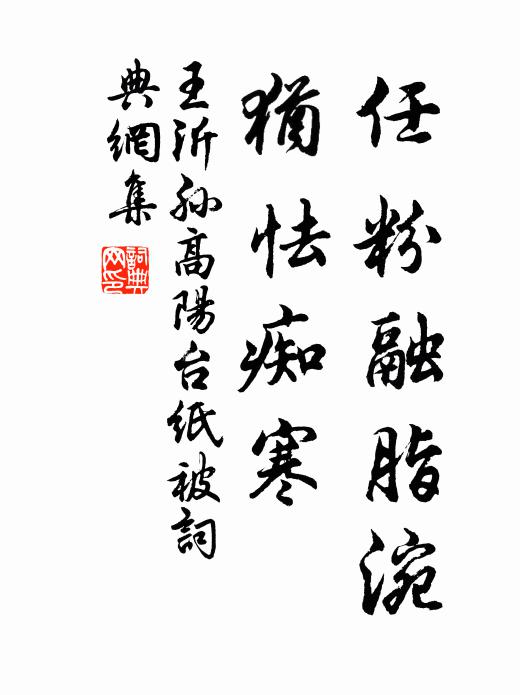 任粉融脂涴
猶怯痴寒
王沂孙高陽台纸被詞
典網集
詞典网印